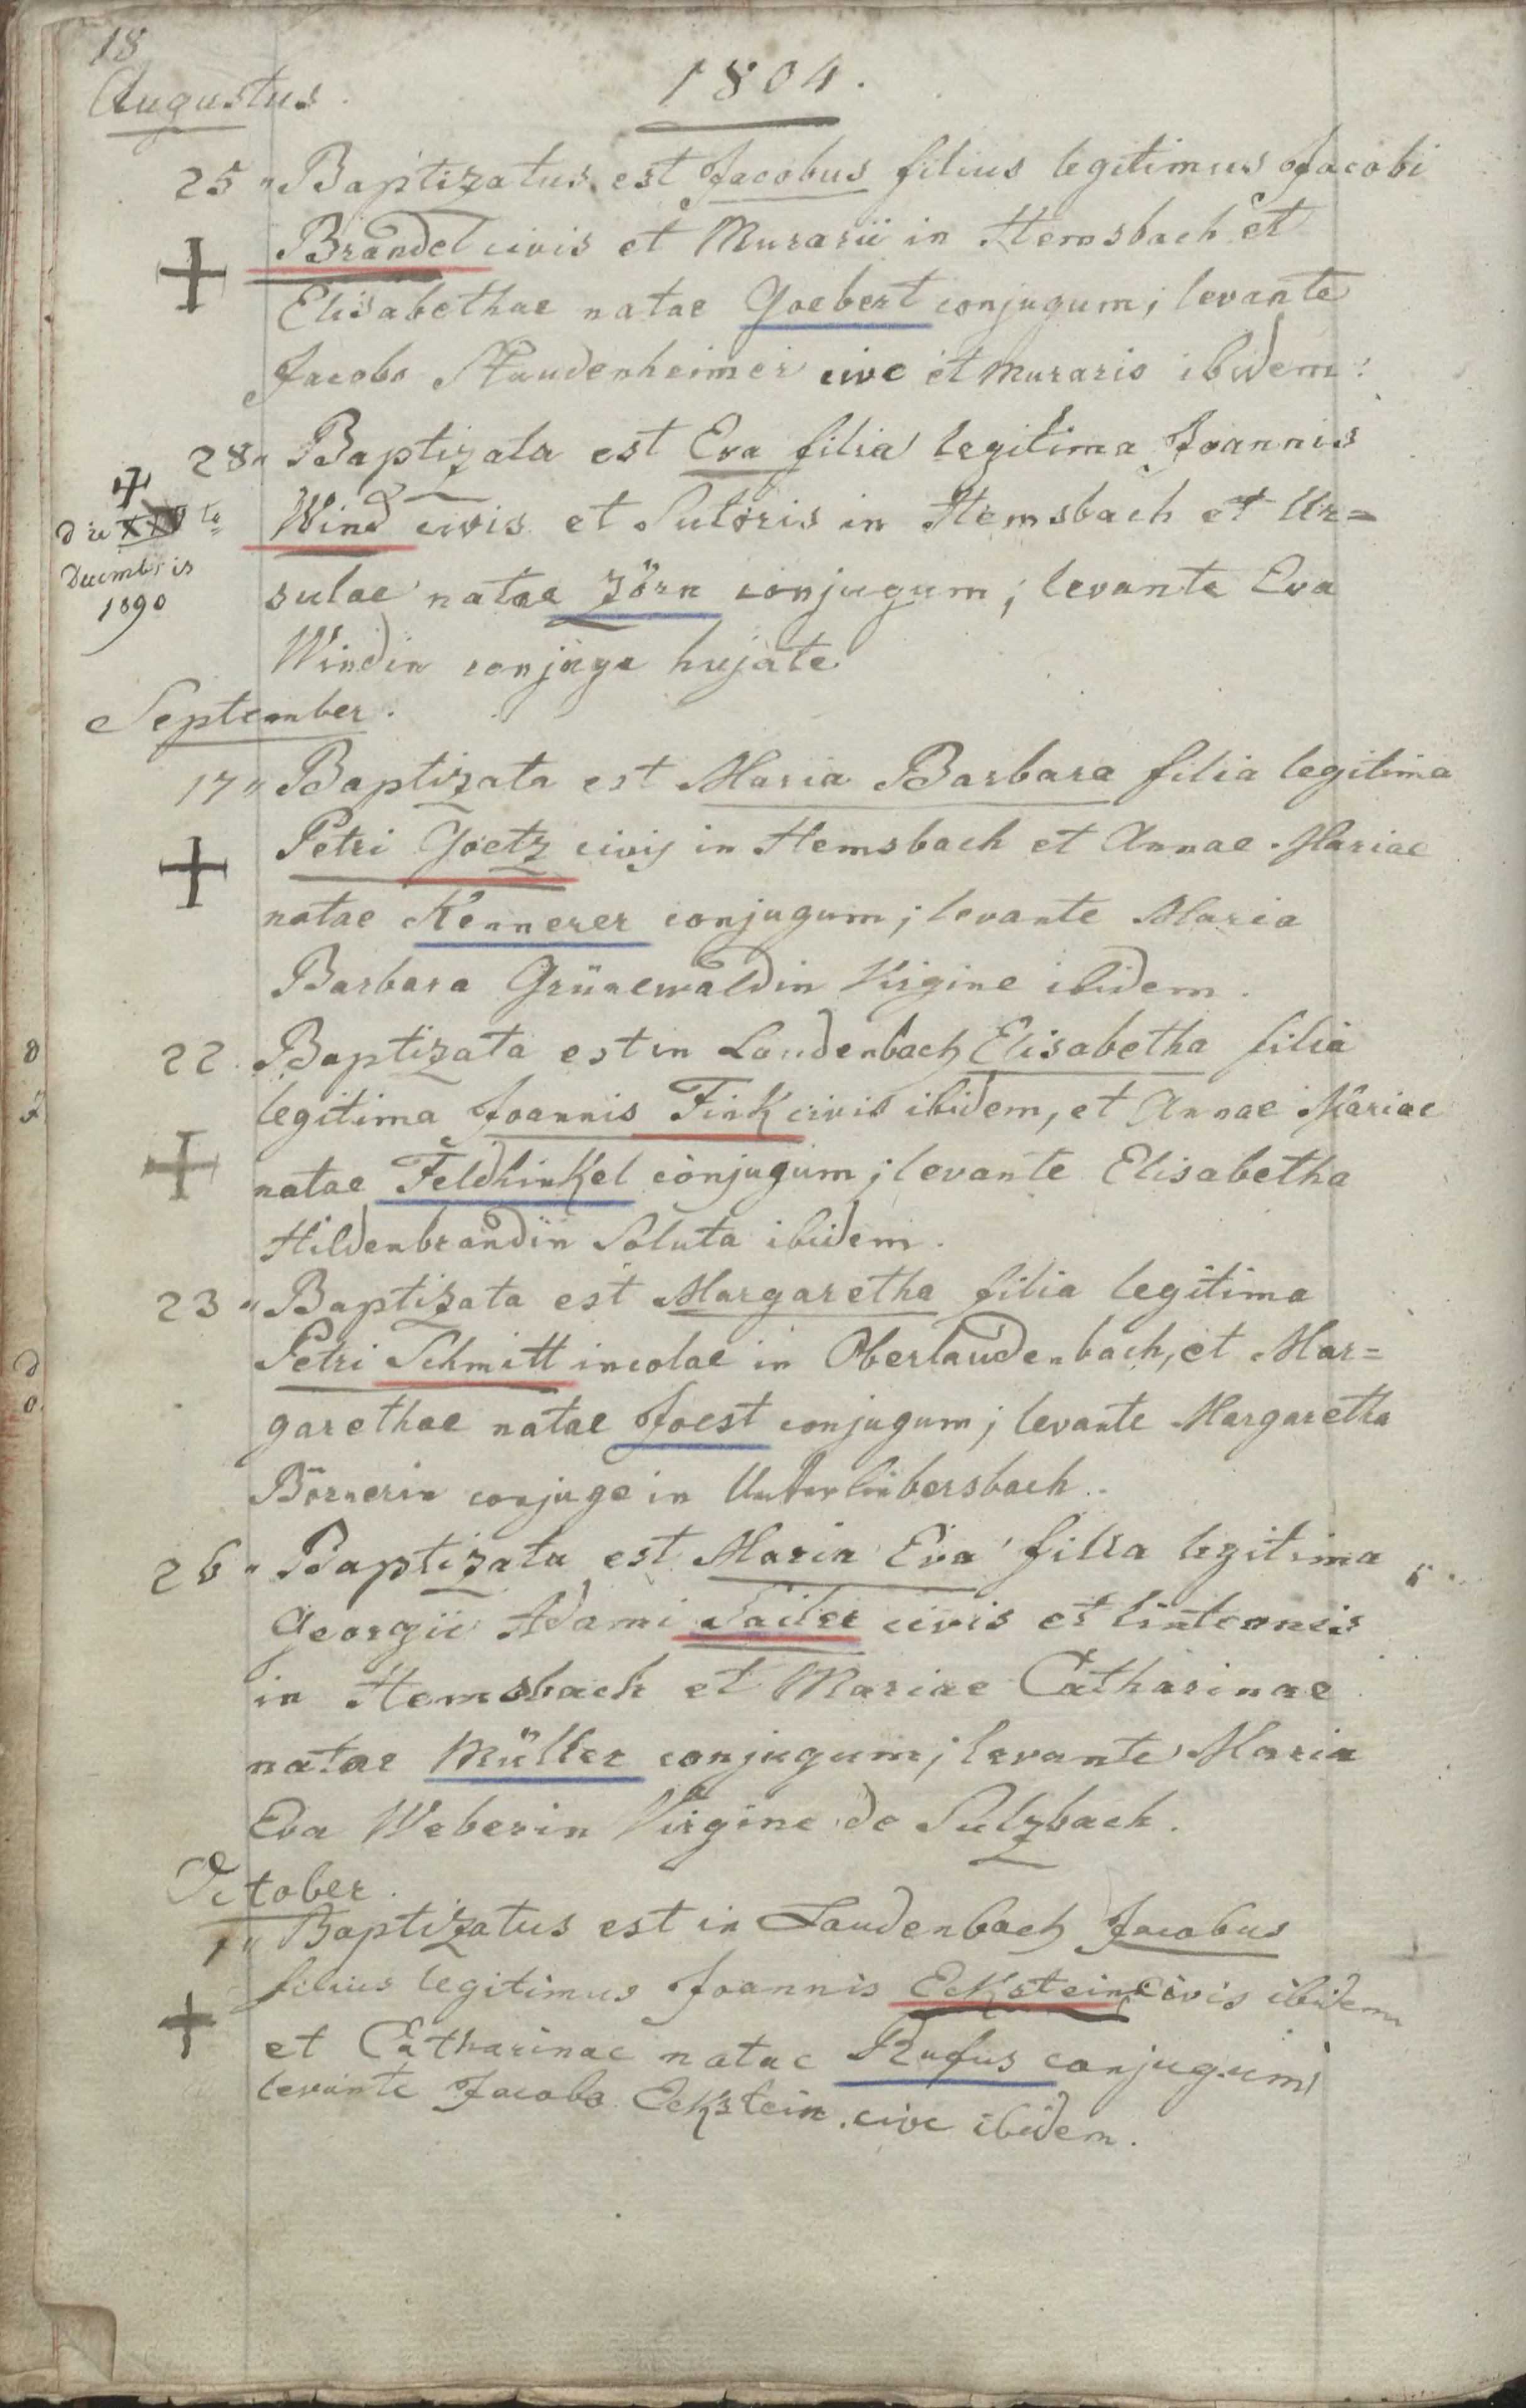 18
1804.
Augustus.
25 " Baptizatus est Jacobus filius legitimus Jacobi
Brandel civis et Murarii in Hemsbach et
Elisabethae natae Goebert conjugum; levante
Jacobo Staudenheimer cive et murario ibidem.
28 " Baptizata est Eva filia legitima Joannis
Wind civis et Sutoris in Hemsbach et Ur=
die
Decembris
1890
sulae natae Zörn conjugum; levante Eva
Windin conjuge hujate
September.
17 " Baptizata est Maria Barbara filia legitima
Petri Goetz civis in Hemsbach et Annae Mariae
natae Kennerer conjugum; levante Maria
Barbara Grünewaldin Virgine ibidem.
22 Baptizata est in Laudenbach Elisabetha filia
legitima Joannis Fink civis ibidem, et Annae Mariae
natae Feldhinkel conjugum; levante Elisabetha
Hildenbrandin Soluta ibidem.
23 " Baptizata est Margaretha filia legitima
Petri Schmitt incolae in Oberlaudenbach, et Mar=
garethae natae Joest conjugum; levante Margaretha
Börnerin conjuge in
26 " Baptizata est Maria Eva filia legitima
Georgii Adami Sailer civis et linteonis
in Hemsbach et Mariae Catharinae
natae Müller conjugum; levante Maria
Eva Weberin Virgine de Sulzbach.
October.
1 " Baptizatus est in Laudenbach Jacobus
filius legitimus Joannis Eckstein civis ibidem
et Catharinae natae Rufus conjugum;
levante Jacobo Eckstein cive ibidem.